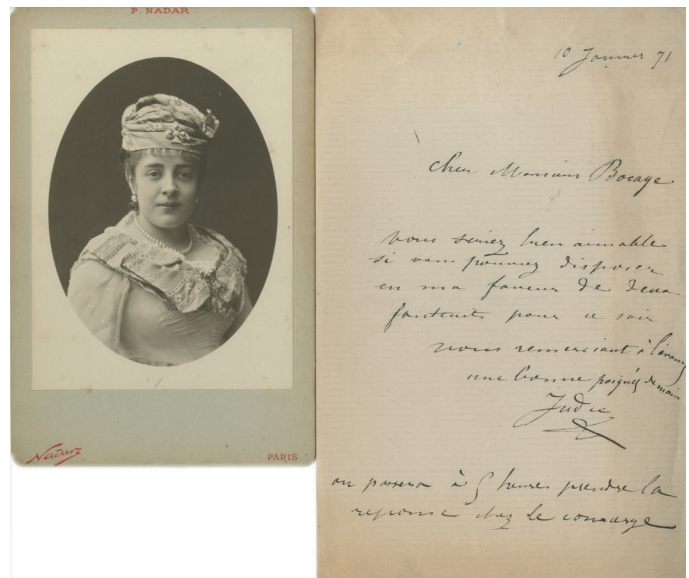 P. NADAR
Nadar
PARIS
10 Janvier 71
Cher Monsieur Bocage
vous seriez bien aimable
si vous pouviez disposer
en ma faveur de deux
fauteuils pour ce soir
vous remerciant à l'avance
une bonne poignée de main
Judic
on passera à 5 heures prendre la
reponse chez le concierge